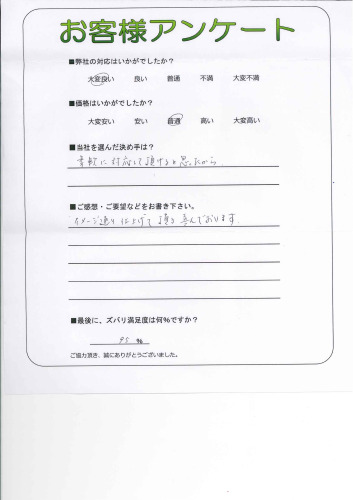 お客様アンケート
■弊社の対応はいかがでしたか？
大変良い 良い 普通 不満 大変不満
■価格はいかがでしたか？
大変安い 安い 普通 高い 大変高い
■当社を選んだ決め手は？
柔軟に対応して頂けると思ったから
■ご感想・ご要望などをお書き下さい。
イメージ通りに上げて頂き喜んでおります
■最後に、ズバリ満足度は何％ですか？
95 %
ご協力頂き、誠にありがとうございました。